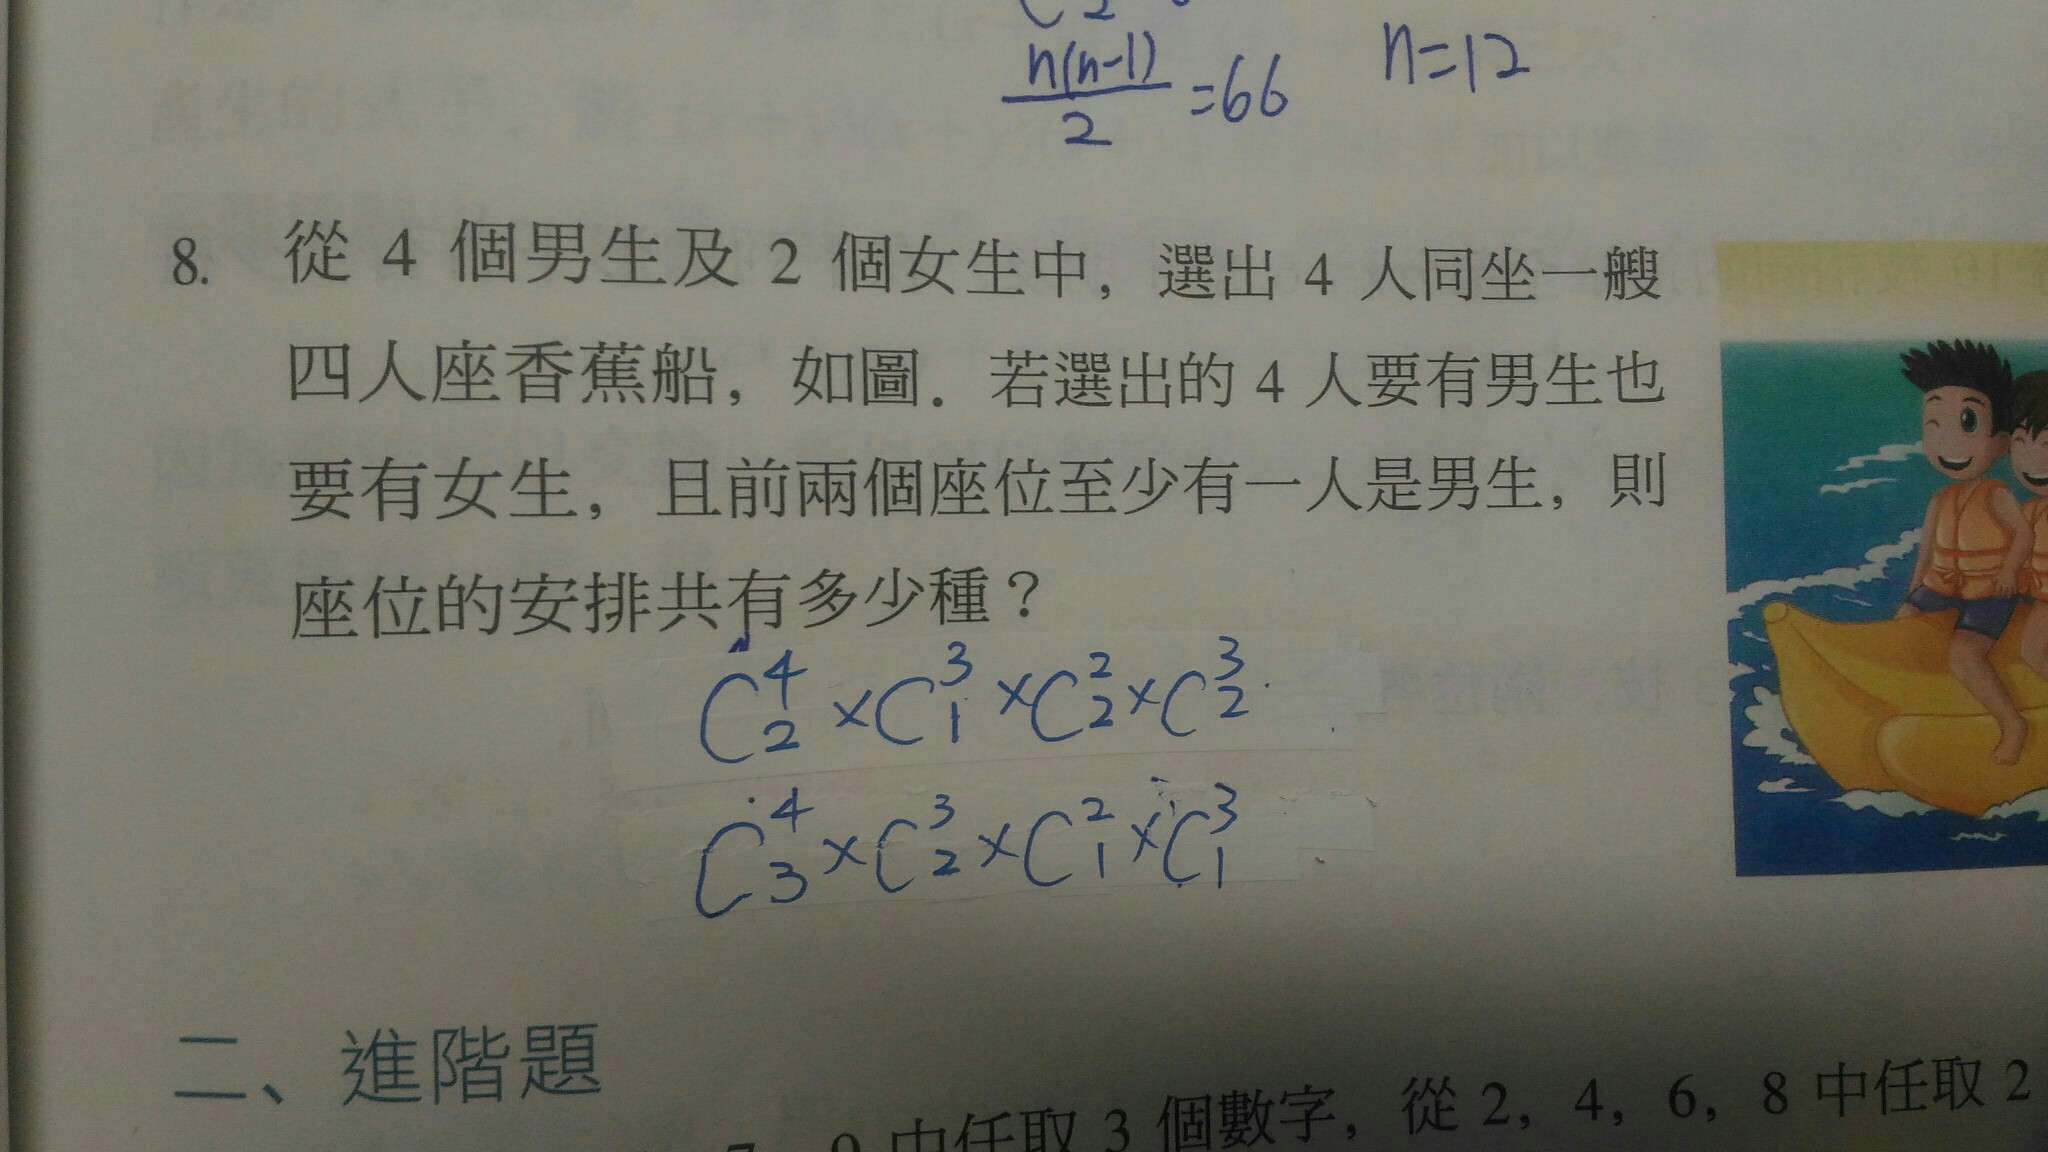 n(n-1)/2 =66 n=12
8. 從 4 個男生及 2 個女生中，選出 4 人同坐一艘
四人座香蕉船，如圖．若選出的 4 人要有男生也
要有女生，且前兩個座位至少有一人是男生，則
座位的安排共有多少種？
C⁴₂×C³₁×C²₂×C³₂
C⁴₃×C³₂×C²₁×C³₁
二、進階題
中任取 3 個數字，從 2，4，6，8 中任取 2